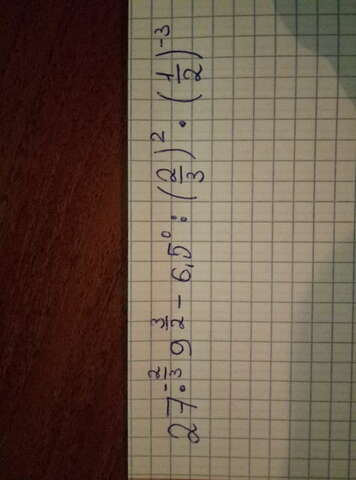 27^{-\frac{2}{3}} · 9^{\frac{3}{2}} - 6,5^{0} : (\frac{2}{3})^{2} · (\frac{1}{2})^{-3}